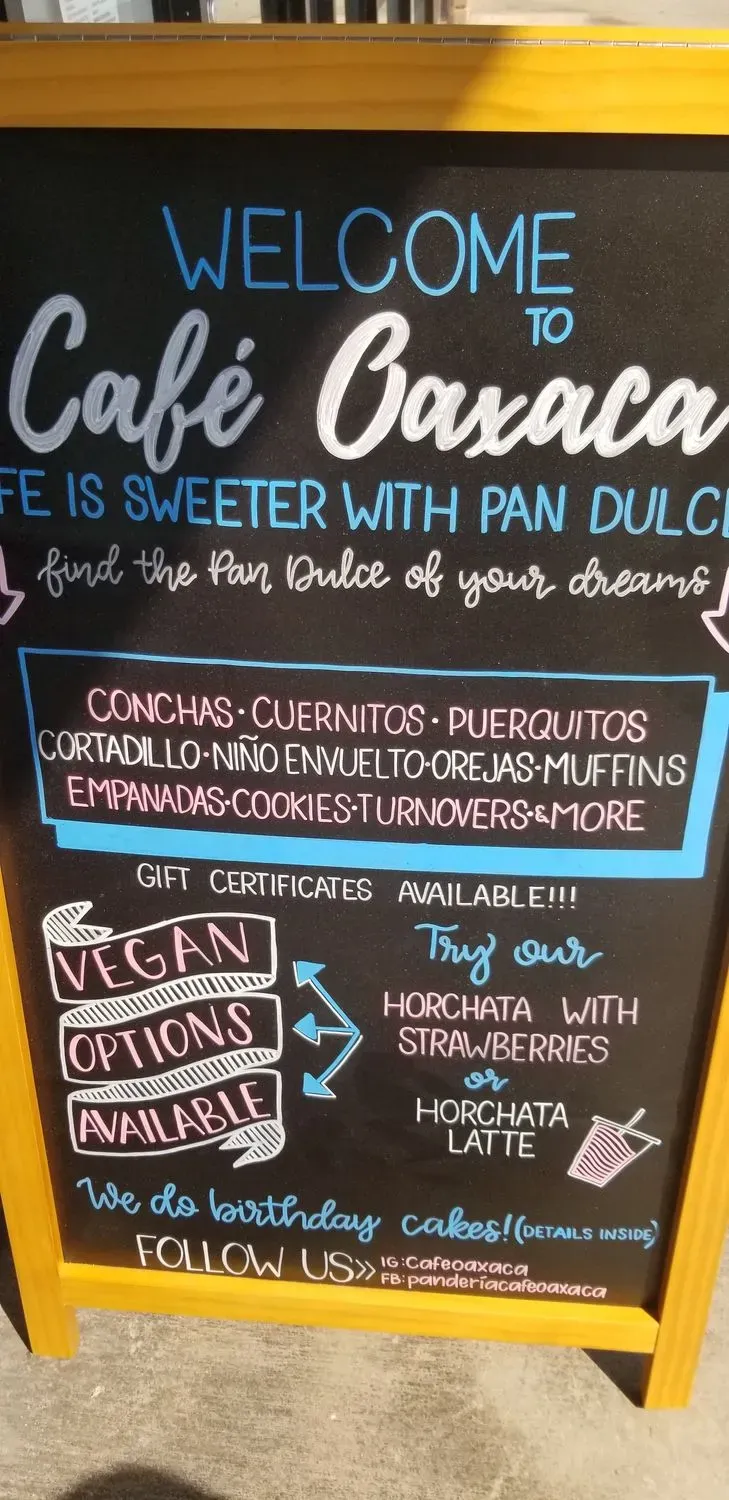 WELCOME
TO
Café Oaxaca
FE IS SWEETER WITH PAN DULC
find the Pan Dulce of your dreams
CONCHAS · CUERNITOS · PUERQUITOS
CORTADILLO · NIÑO ENVUELTO · OREJAS · MUFFINS
EMPANADAS · COOKIES · TURNOVERS · & MORE
GIFT CERTIFICATES AVAILABLE!!!
VEGAN
OPTIONS
AVAILABLE
Try our
HORCHATA WITH
STRAWBERRIES
or
HORCHATA
LATTE
We do birthday cakes! (DETAILS INSIDE)
FOLLOW US>>
IG:Cafeoaxaca
FB:panderíacafeoaxaca